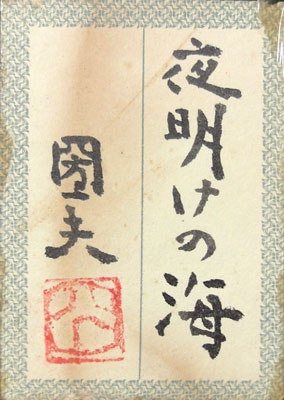 夜明けの海
圀夫